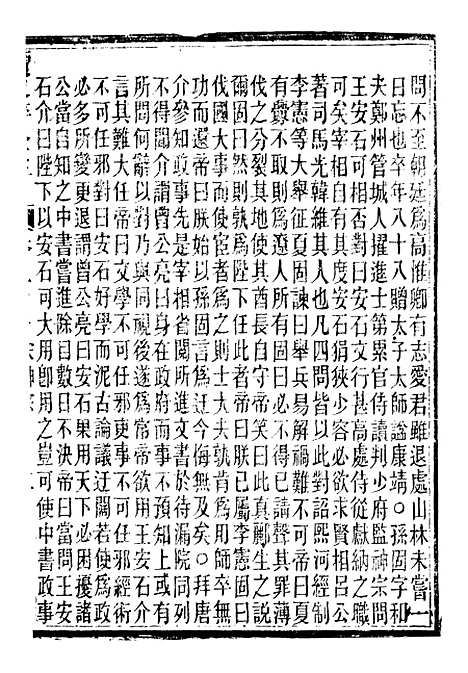 問不至朝廷爲高惟卿有志愛君雖退處山林未嘗一
日忘也卒年八十八贈太子太師諡康靖○孫固字和
夫鄭州管城人擢進士第累官侍讀判少府監神宗問
王安石可相否對曰安石文行甚高處侍從獻納之職
可矣宰相自有其度安石狷狹少容必欲求賢相呂公
著司馬光韓維其人也凡四問皆以此對詔熙河經制
李憲等大舉征夏固諫曰舉兵易解禍難不可帝曰夏
有釁不取則爲遼人所有固曰必不得已請聲其罪薄
伐之分裂其地使其酋長自守帝笑曰此眞酈生之說
爾固曰然則孰爲陛下任此者帝曰朕已屬李憲固曰
伐國大事而使宦者爲之士大夫孰肯爲用師卒無
功而還帝曰朕始以孫固言爲迂今悔無及矣○拜唐
介參知政事先是宰相省閱所進文書於待漏院同列
不得聞介謂曾公亮曰身在政府而事不預知上或有
所問何辭以對乃與同視後遂爲常帝欲用王安石介
言其難大任帝曰文學不可任邪吏事不可任邪經術
不可任邪對曰安石好學而泥古論議迂闊若使爲政
必多所變更退謂曾公亮曰安石果用天下必困擾諸
公當自知之中書嘗進除目數日不決帝曰當問王安
石介曰陛下以安石可大用卽用之豈可使中書政事